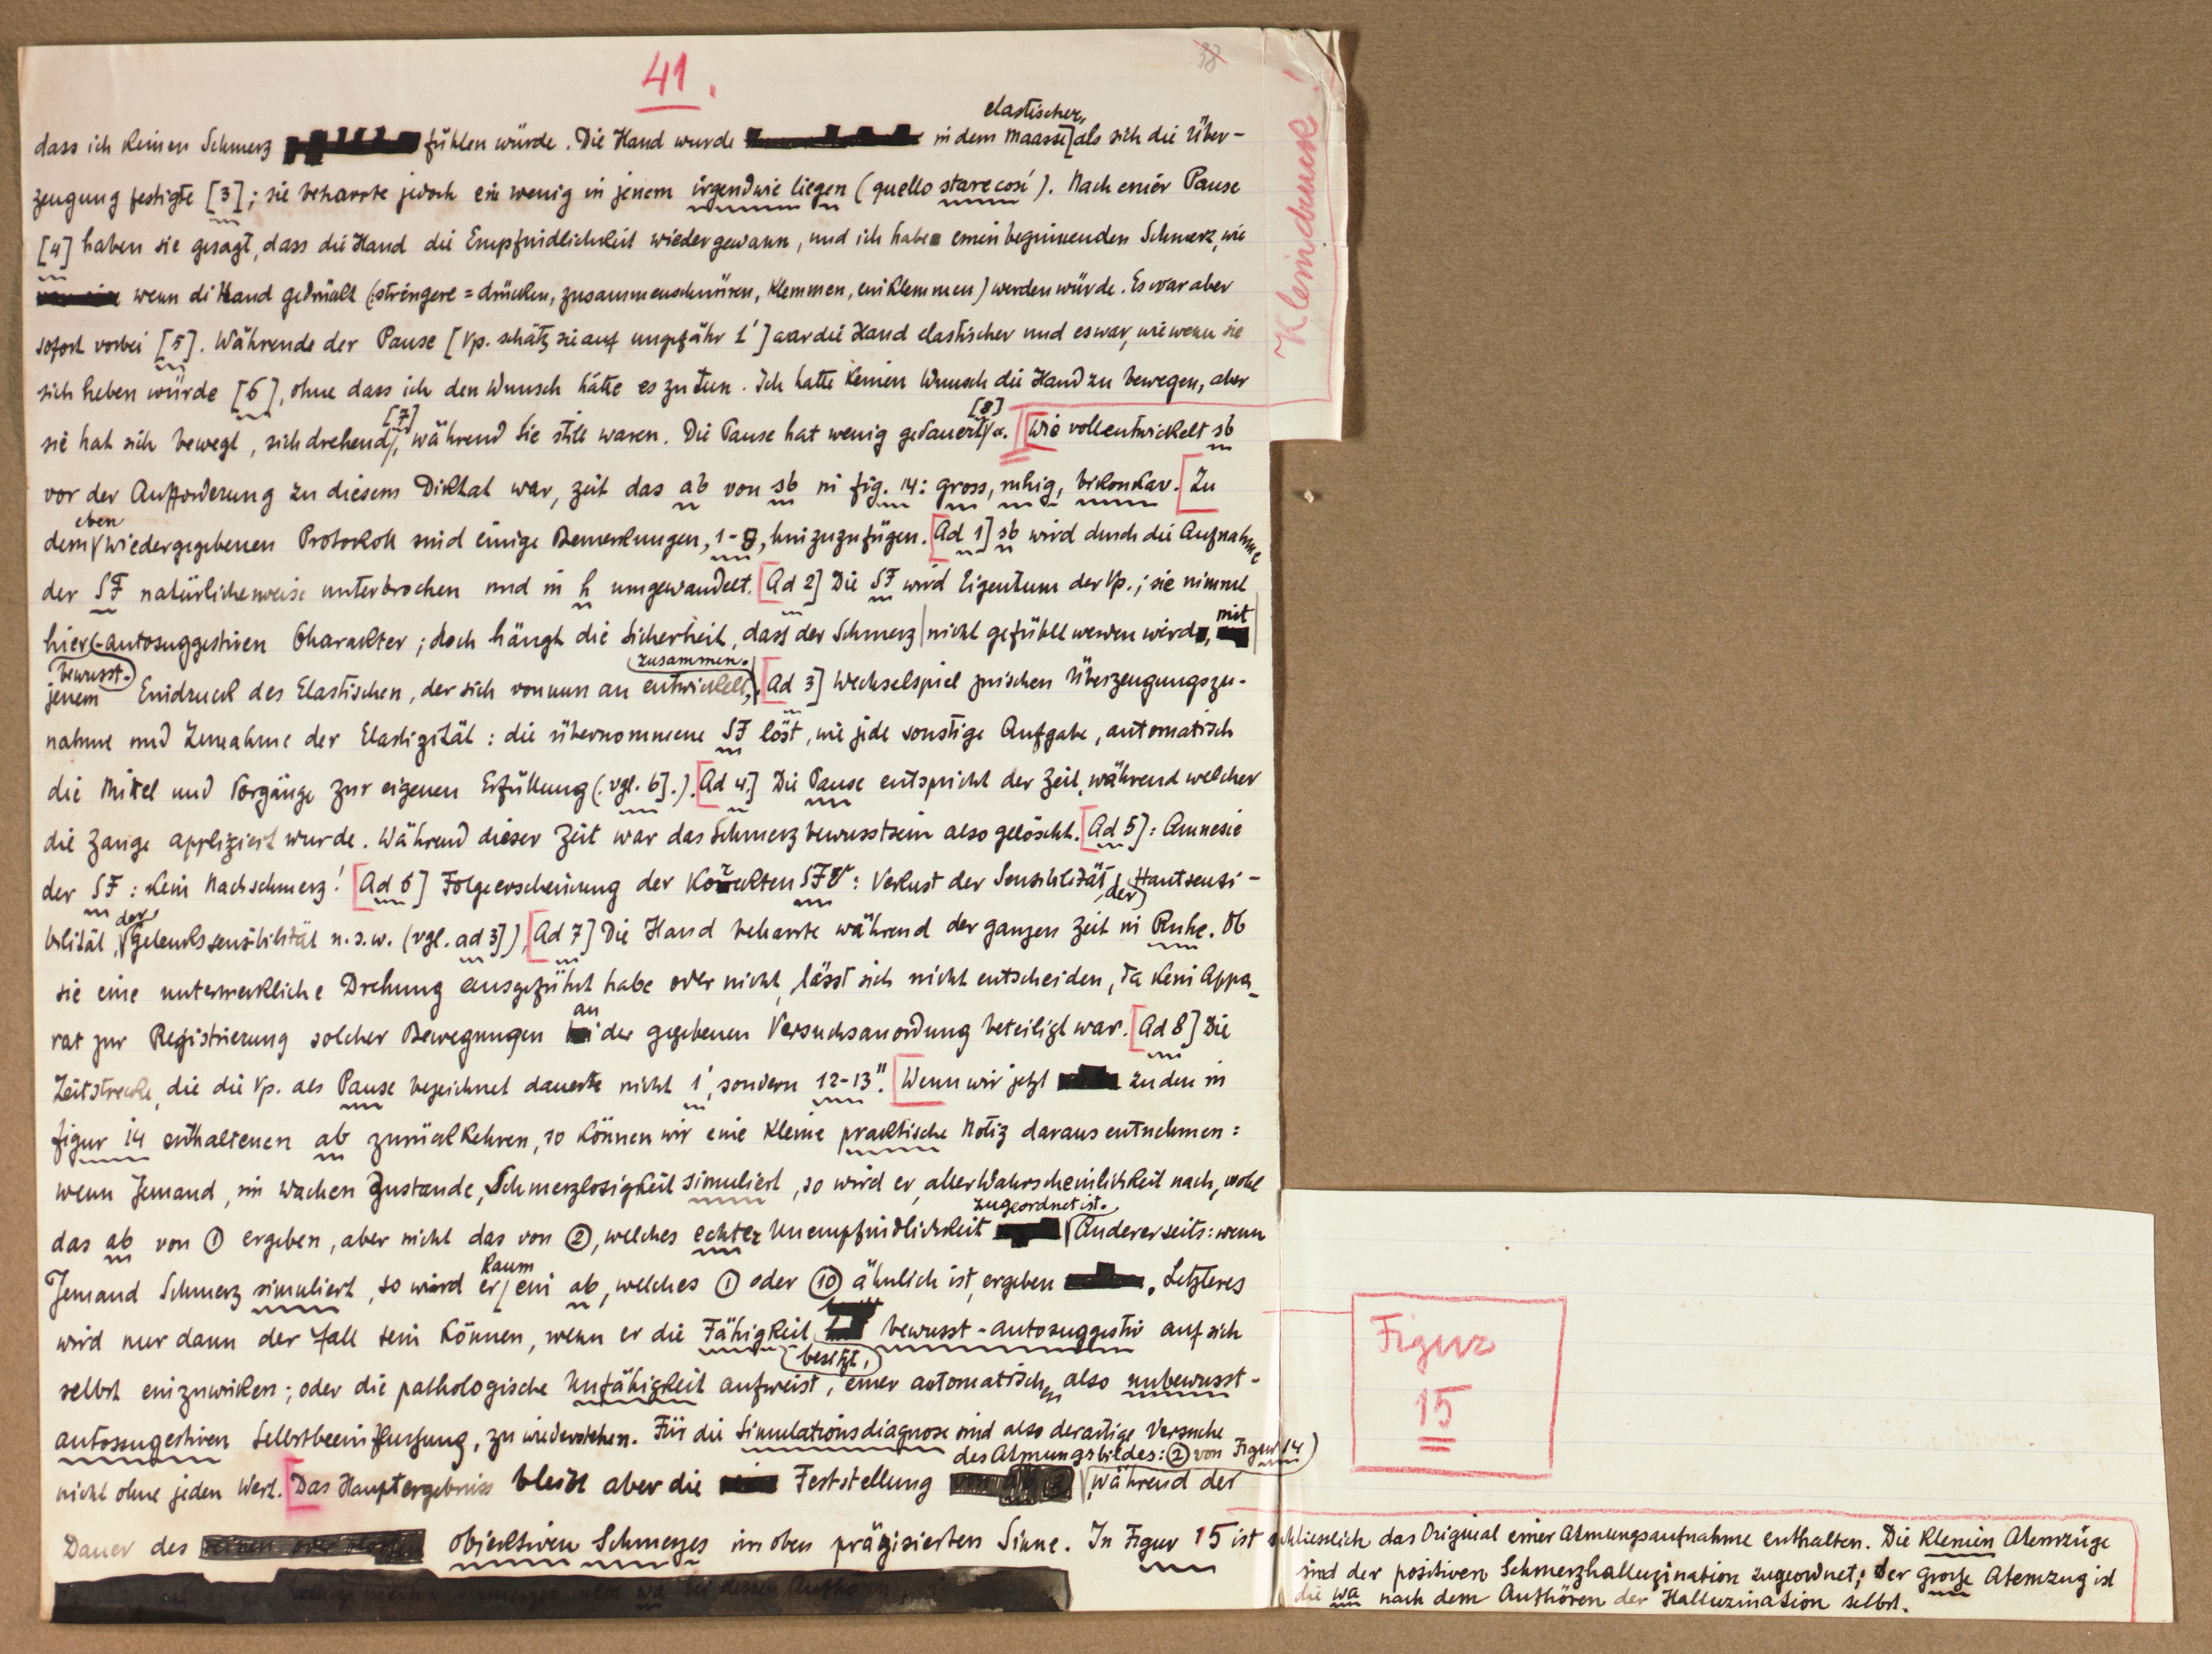 41.
38
dass ich keinen Schmerz fühlen würde. Die Hand wurde elastischer, in dem Maasse] als sich die Über-
zeugung festigte [3]; sie beharrte jedoch ein wenig in jenem irgendwie liegen (quello stare così). Nach einer Pause
[4] haben sie gesagt, dass die Hand die Empfindlichkeit wiedergewann, und ich habe einen beginnenden Schmerz, wie
wenn di Hand gedrückt (stringere = drücken, zusammenschnüren, klemmen, einklemmen) werden würde. Es war aber
sofort vorbei [5]. Währende der Pause [Vp. schätz sie auf ungefähr 1'] war die Hand elastischer und es war, wie wenn sie
sich heben würde [6], ohne dass ich den Wunsch hätte es zu tun. Ich hatte keinen Wunsch die Hand zu bewegen, aber
sie hat sich bewegt, sich drehend [7], während sie still waren. Die Pause hat wenig gedauert [8]". [Wie vollentwickelt sb
vor der Aufforderung zu diesem Diktat war, zeit das ab von sb in fig. 14: gross, ruhig, bikonkav. [Zu
dem eben wiedergegebenen Protokoll sind einige Bemerkungen, 1-8, hinzuzufügen. [Ad 1] sb wird durch die Aufnahme
der SF natürlicherweise unterbrochen und in h umgewandelt. [Ad 2] Die SF wird Eigentum der Vp.; sie nimmt
hier bewusst-autosuggestiven Charakter; doch hängt die Sicherheit, dass der Schmerz nicht gefühlt werden wird, mit
jenem Eindruck des Elastischen, der sich von nun an entwickelt, zusammen. [Ad 3] Wechselspiel zwischen Überzeugungszu-
nahme und Zuneahme der Elastizität: die übernommene SF löst, wie jede sonstige Aufgabe, automatisch
die Mittel und Vorgänge zur eigenen Erfüllung (vgl. 6].). [Ad 4.] Die Pause entspricht der Zeit, während welcher
die Zange appliziert wurde. Während dieser Zeit war das Schmerzbewusstsein also gelöscht. [Ad 5]: Amnesie
der SF: kein Nachschmerz! [Ad 6] Folgeerscheinung der korrekten SFV: Verlust der Sensibilität, der Hautsensi-
bilität, der Gelenkssensibilität u.s.w. (vgl. ad 3]). [Ad 7] Die Hand beharrte während der ganzen Zeit in Ruhe. Ob
sie eine untermerkliche Drehung ausgeführt habe oder nicht, lässt sich nicht entscheiden, da kein Appa-
rat zur Registrierung solcher Bewegungen an der gegebenen Versuchsanordung beteiligt war. [Ad 8] Die
Zeitstrecke, die die Vp. als Pause bezeichnet dauerte nicht 1', sondern 12-13". [Wenn wir jetzt zu den in
figur 14 enthaltenen ab zurückkehren, so können wir eine kleine praktische Notiz daraus entnehmen:
wenn Jemand, im wachen Zustande, Schmerzlosigkeit simuliert, so wird er, aller Wahrscheinlichkeit nach, wohl
das ab von ① ergeben, aber nicht das von ②, welches echter Unempfindlichkeit zugeordnet ist. Andererseits: wenn
Jemand Schmerz simuliert, so wird er kaum ein ab, welches ① oder ⑩ ähnlich ist, ergeben. Letzteres
wird nur dann der Fall sein können, wenn er die Fähigkeit besitzt, bewusst-autosuggestiv auf sich
selbst einzuwirken; oder die pathologische Unfähigkeit aufweist, einer automatischen, also unbewusst-
autossugestiven Selbstbeeinflussung, zu wiederstehen. Für die Simulationsdiagnose sind also derartige Versuche
nicht ohne jeden Wert. [Das Hauptergebniss bleibt aber die Feststellung des Atmungsbildes: ② von Figur 14 während der
Dauer des objektiven Schmerzes im oben präzisierten Sinne. In Figur 15 ist schliesslich das Original einer Atmungsaufnahme enthalten. Die kleinen Atemzüge
sind der positiven Schmerzhalluzination zugeordnet; der grosse Atemzug ist
die wa nach dem Aufhören der Halluzination selbst.
Kleindruck!
Figur
15